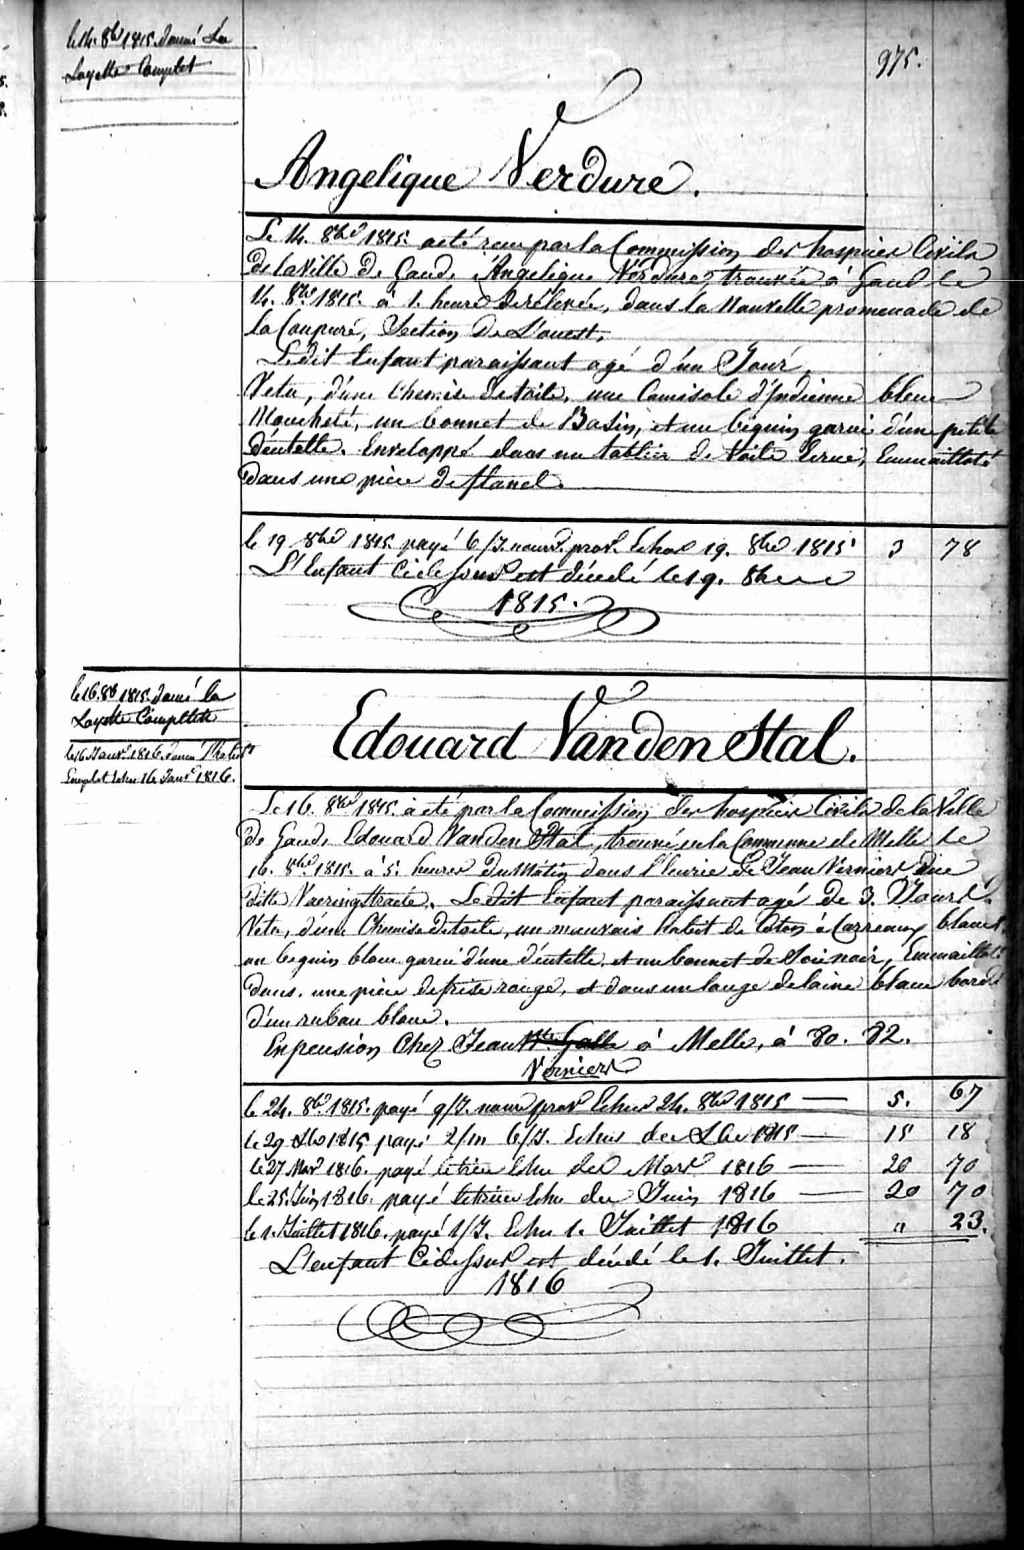 975.
le 14. 8bre 1815. donné La
Layette Complet
Angelique Verdure.
Le 14. 8bre 1815. a été reçu par la Commission des hospices Civils
de la Ville de Gand, Angelique Verdure, trouvée à Gand le
14. 8bre 1815. à 1. heure de rélevée, dans la Nouvelle promenade de
la Coupure, Section de L'ouest,
Ledit Enfant paraissant agé d'un Jour,
Vetu, d'une Chemise de toile, une Camisole d'Indienne bleue
Moucheté, un bonnet de Basin, et un béguin garni d'une petite
dentelle. Enveloppé dans un tablier de toile Ecrue, Emmailloté
dans une pièce de flanel.
le 19 8bre 1815. payé 6/J. nourr. prov. Echus 19. 8bre 1815 3 78
L'Enfant Cidessus est décédé le 19. 8bre
1815.
le 16. 8b 1815. donné la
Layette Complette
le 16 Janvr 1816. donné
Complet Echu 16 Janr 1816.
Edouard Vanden Stal.
Le 16. 8bre 1815. a été par la Commission des hospices Civils de la Ville
de Gand, Edouard Vanden Stal, trouvé en la Commune de Melle Le
16. 8bre 1815. à 5. heures du Matin dans l'Ecurie de Jean Verniers Rue
ditte Vaeringstraete. Ledit Enfant paraissant agé de 3. Jours.
Vetu, d'une Chemise de toile, un mauvais habit de Coton à Carreaux blancs
un beguin blanc garni d'une dentelle, et un bonnet de Soie noir, Emmailloté
dans une pièce de frise rouge, et dans un lange de laine blanc bordé
d'un ruban blanc.
En pension Chez Jean à Melle, à 80. 82.
Verniers
le 24. 8bre 1815. payé 9/J. nourr prov Echus 24. 8bre 1815 — 5. 67
le 29 Xbre 1815 payé 2/m 6/J. Echus de Xbre 1815 — 15 18
le 27 Mars 1816. payé letrim Echu de Mars 1816 — 20 70
le 25 Juin 1816. payé letrim Echu de Juin 1816 — 20 70
le 1. Juillet 1816. payé 1/J. Echu 1. Juillet 1816 " 23.
L'enfant Cidessus est décédé le 1. Juillet.
1816